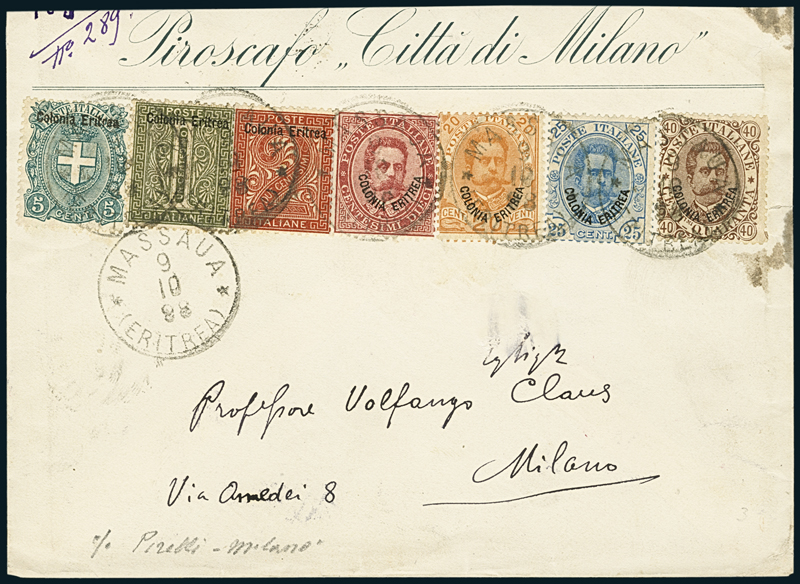 No 289
Piroscafo „Città di Milano"
POSTE ITALIANE
Colonia Eritrea
5 CENT. 5
Colonia Eritrea
ITALIANE
POSTE
Colonia Eritrea
ITALIANE
POSTE ITALIANE
COLONIA ERITREA
CENTESIMI DIECI
20 20
POSTE ITALIANE
COLONIA ERITREA
CENTESIMI VENTI
25 25
POSTE ITALIANE
COLONIA ERITREA
25 CENT. 25
40 40
POSTE ITALIANE
COLONIA ERITREA
CENT. QUARANTA
40 40
MASSAUA
9
10
98
(ERITREA)
Professore Volfango Claus
Milano
Via Amedei 8
c/o Pirelli - Milano